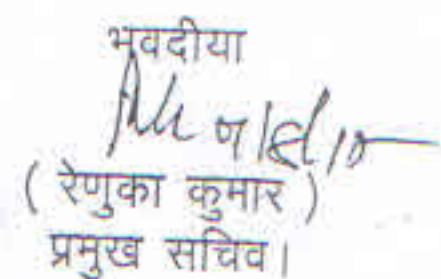 भवदीया
( रेणुका कुमार )
प्रमुख सचिव।